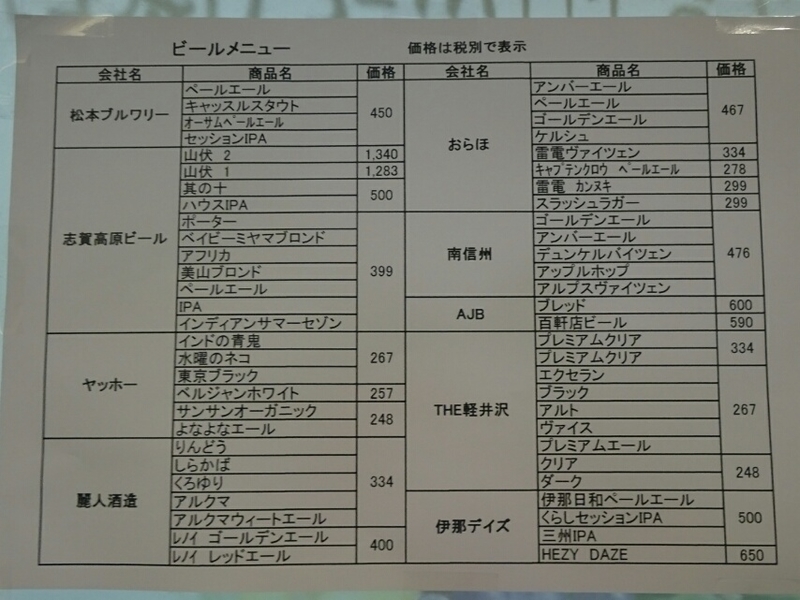 ビールメニュー 価格は税別で表示
会社名 商品名 価格
松本ブルワリー
ペールエール
キャッスルスタウト
オーサムペールエール
セッションIPA
450
志賀高原ビール
山伏 2 1,340
山伏 1 1,283
其の十
ハウスIPA
500
ポーター
ベイビーミヤマブロンド
アフリカ
美山ブロンド
ペールエール
IPA
インディアンサマーセゾン
399
ヤッホー
インドの青鬼
水曜のネコ
東京ブラック
267
ベルジャンホワイト 257
サンサンオーガニック
よなよなエール
248
麗人酒造
りんどう
しらかば
くろゆり
アルクマ
アルクマウィートエール
334
レノイ ゴールデンエール
レノイ レッドエール
400
会社名 商品名 価格
おらほ
アンバーエール
ペールエール
ゴールデンエール
ケルシュ
467
雷電ヴァイツェン 334
キャプテンクロウ ペールエール 278
雷電 カンヌキ 299
スラッシュラガー 299
南信州
ゴールデンエール
アンバーエール
デュンケルバイツェン
アップルホップ
アルプスヴァイツェン
476
AJB
ブレッド 600
百軒店ビール 590
THE軽井沢
プレミアムクリア
プレミアムクリア
334
エクセラン
ブラック
アルト
ヴァイス
プレミアムエール
267
クリア
ダーク
248
伊那デイズ
伊那日和ペールエール
くらしセッションIPA
三州IPA
500
HEZY DAZE 650